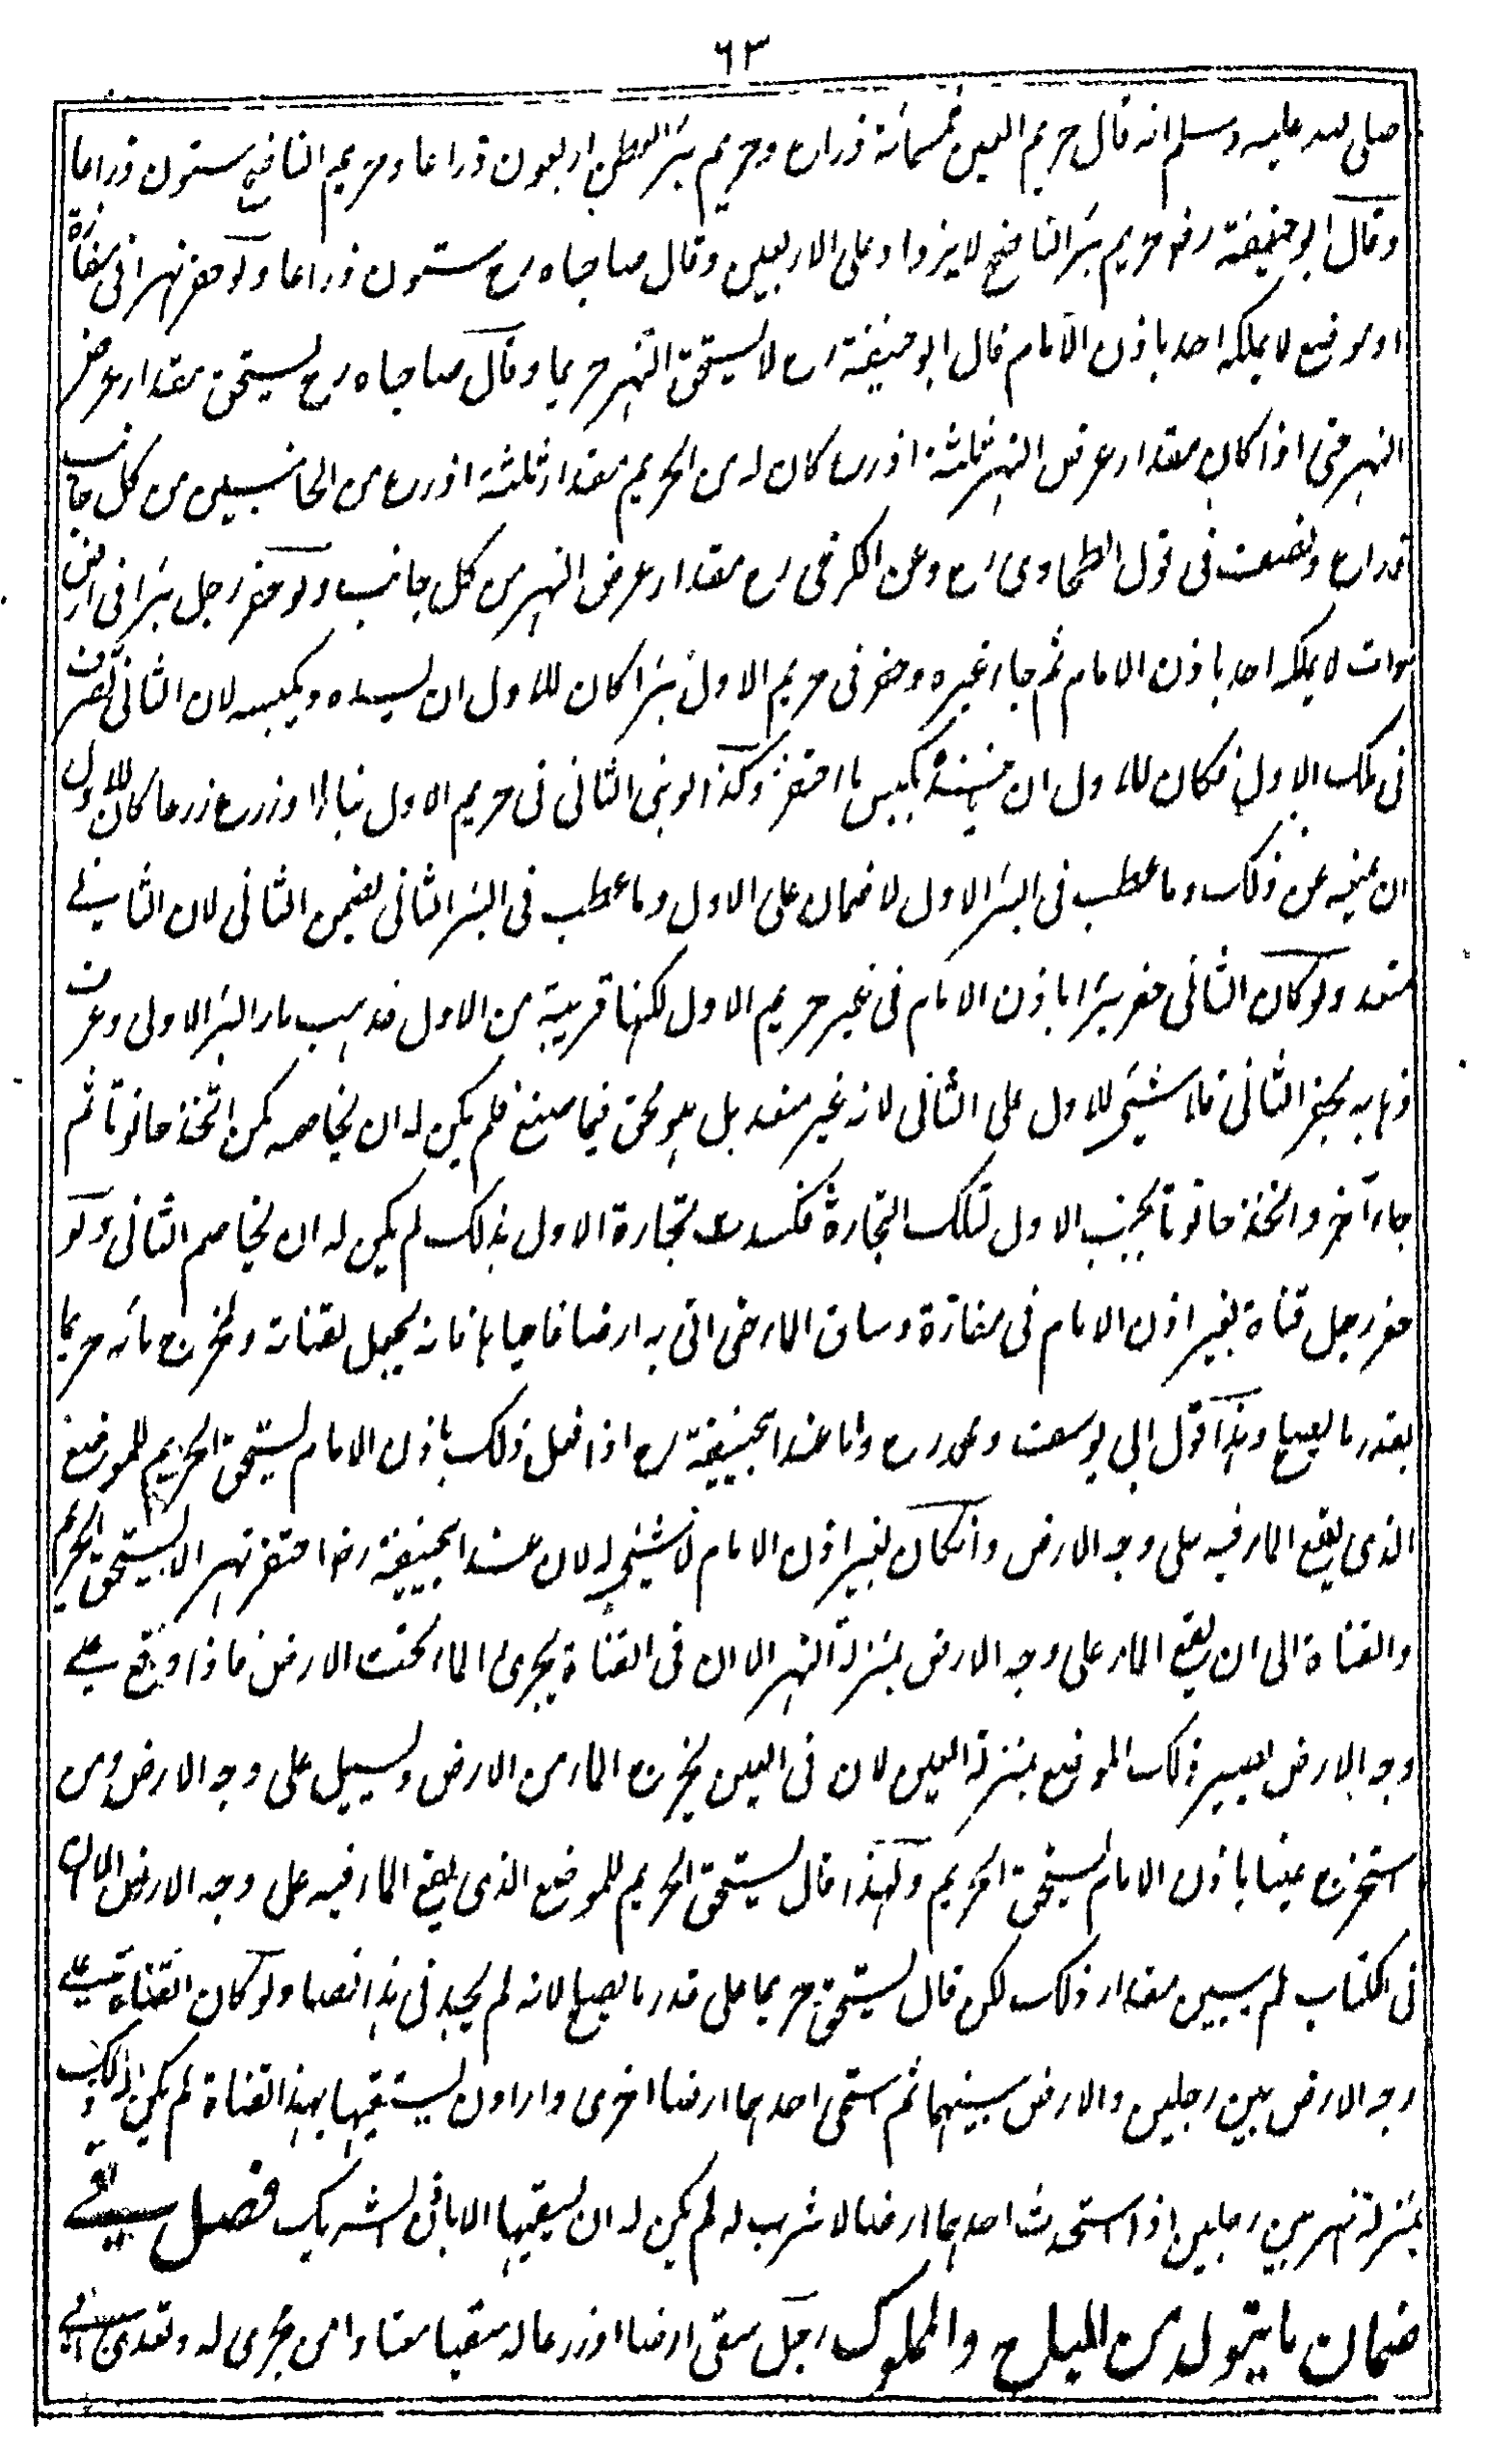 ٦٣
صلى الله عليه وسلم انه قال حريم العين خمسمائة ذراع وحريم بئر العطن اربعون ذراعا وحريم الناضح ستون ذراعا
وقال ابو حنيفة رض حريم بئر الناضح لا يزداد على الاربعين وقال صاحباه رح ستون ذراعا ولو حفر نهرا في مفازة
او موضع لا يملكه احد باذن الامام قال ابو حنيفة رح لا يستحق النهر حريما وقال صاحباه رح يستحق مقدار عرض
النهر حتى اذا كان مقدار عرض النهر ثلثة اذرع كان له من الحريم مقدار ثلثة اذرع من الجانبين من كل جانب
ذراع ونصف في قول الطحاوي رح وعن الكرخي رح مقدار عرض النهر من كل جانب ولو حفر رجل بئرا في ارض
موات لا يملكه احد باذن الامام ثم جاء غيره وحفر في حريم الاول بئرا كان للاول ان يسده ويكبسه لان الثاني تصرف
في ملك الاول فكان للاول ان يكبس ما احتفر وكذا لو بنى الثاني في حريم الاول بناء او زرع زرعا كان للاول
ان يمنعه عن ذلك وما عطب في البئر الاول لا ضمان على الاول وما عطب في البئر الثاني يضمن الثاني لان الثاني
متعد ولو كان الثاني حفر بئرا باذن الامام في غير حريم الاول لكنها قريبة من الاول فذهب ماء البئر الاولى وعرف
ذهابه بحفر الثاني فلا شيء للاول على الثاني لانه غير متعد بل هو محق فيما صنع فلم يكن له ان يخاصمه كمن اتخذ حانوتا ثم
جاء آخر واتخذ حانوتا بجنب الاول لتلك التجارة فكسدت تجارة الاول بذلك لم يكن له ان يخاصم الثاني ولو
حفر رجل قناة بغير اذن الامام في مفازة وساق الماء حتى اتى به ارضا فاحياها فانه يجعل لقناته ولمخرج مائه حريما
بقدر ما يصلح وهذا قول ابي يوسف ومحمد رح واما عند ابيحنيفة رح اذا فعل ذلك باذن الامام يستحق الحريم للموضع
الذي يقع الماء فيه على وجه الارض وانكان بغير اذن الامام لا شيء له لان عند ابيحنيفة رض احتفر نهرا لا يستحق الحريم
والقناة الى ان يقع الماء على وجه الارض بمنزلة النهر الا ان في القناة يجري الماء تحت الارض فاذا وقع على
وجه الارض يصير ذلك الموضع بمنزلة العين لان في العين يخرج الماء من الارض ويسيل على وجه الارض ومن
استخرج عينا باذن الامام يستحق الحريم ولهذا قال يستحق الحريم للموضع الذي يقع الماء فيه على وجه الارض الا ان
في الكتاب لم يبين مقدار ذلك لكن قال يستحق حريما على قدر ما يصلح لانه لم يجد في هذا نصا ولو كان القناة على
وجه الارض بين رجلين والارض بينهما ثم استحيى احدهما ارضا اخرى واراد ان يستقيها بهذا القناة لم يكن له ذلك
بمنزلة نهر بين رجلين اذا استحدث احدهما ارضا لا شرب له لم يكن له ان يسقيها الا باذن الشريك فصل في
ضمان ما يتولد من المباح والمملوك رجل سقى ارضا او زرعا له سقيا معتادا من مجرى له وتعدى الى